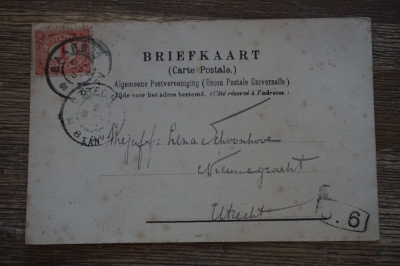 BRIEFKAART
(Carte Postale.)
Algemeene Postvereeniging (Union Postale Universelle)
Zijde voor het adres bestemd. (Côté réservé à l'adresse.)
Mejuff: Lena Schoonhoven
Nieuwegracht
Utrecht
6